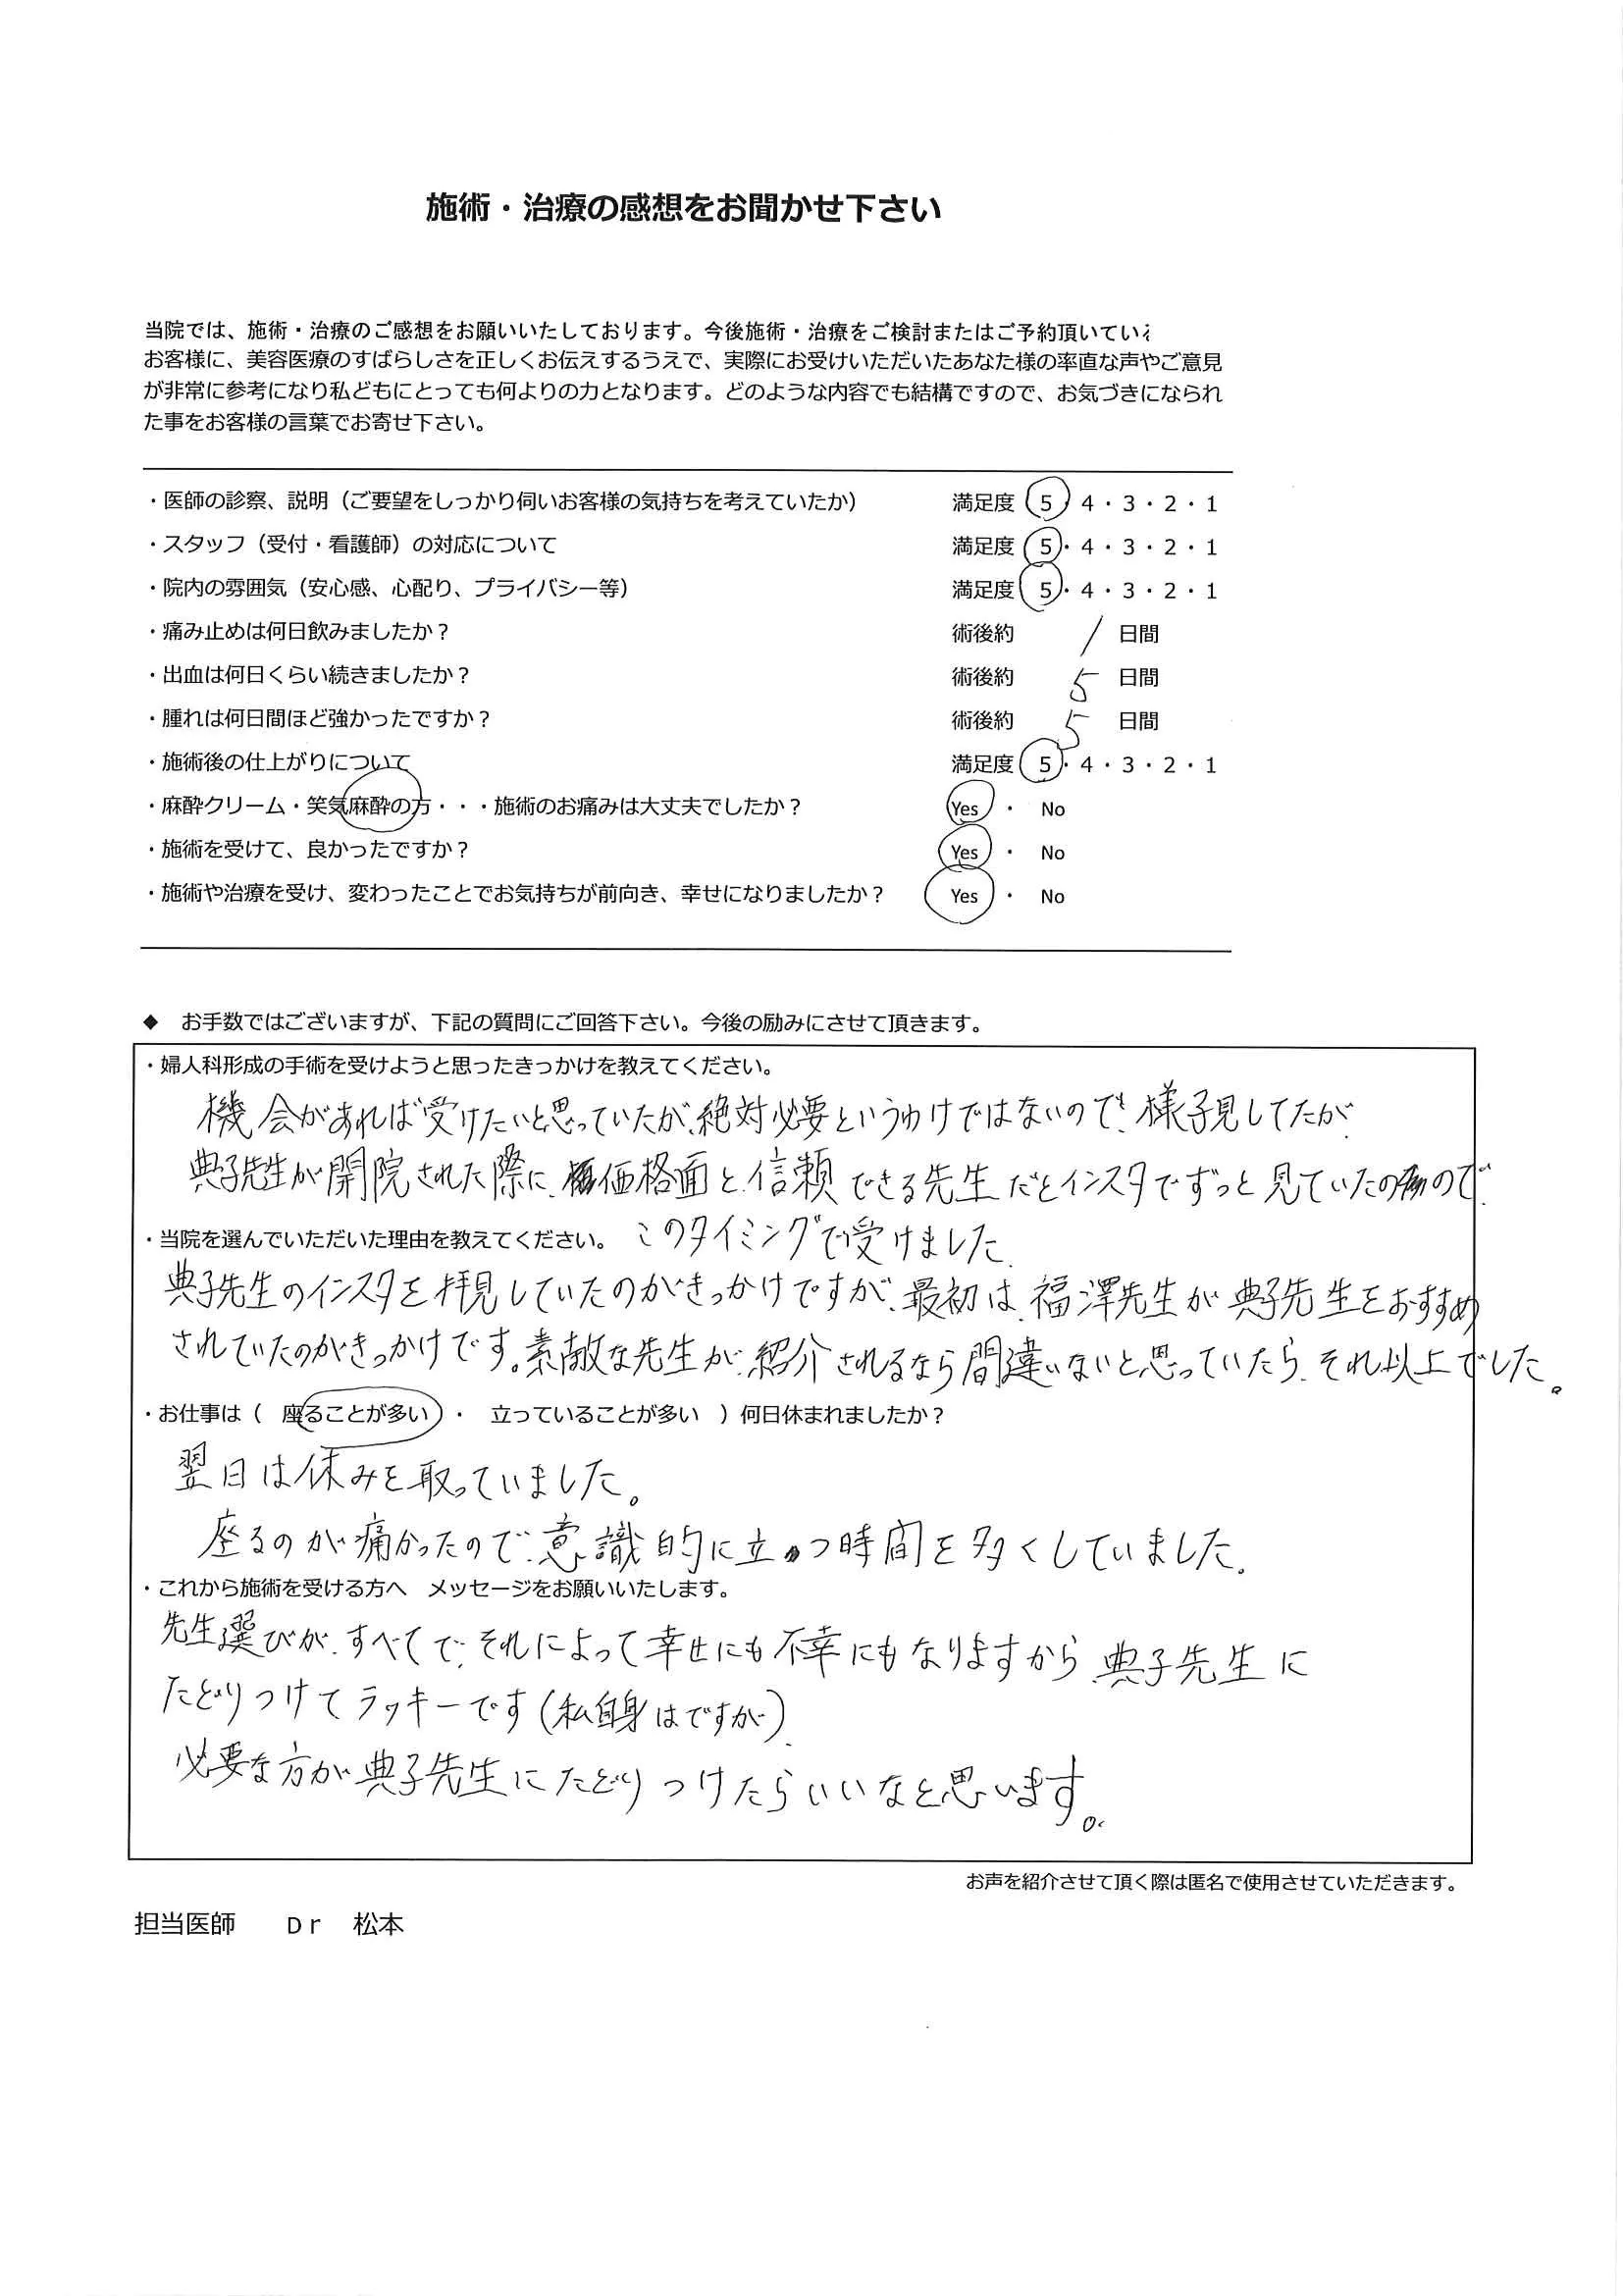 施術・治療の感想をお聞かせ下さい
当院では、施術・治療のご感想をお願いいたしております。今後施術・治療をご検討またはご予約頂いている
お客様に、美容医療のすばらしさを正しくお伝えするうえで、実際にお受けいただいたあなた様の率直な声やご意見
が非常に参考になり私どもにとっても何よりの力となります。どのような内容でも結構ですので、お気づきになられ
た事をお客様の言葉でお寄せ下さい。
・医師の診察、説明（ご要望をしっかり伺いお客様の気持ちを考えていたか） 満足度 5・4・3・2・1
・スタッフ（受付・看護師）の対応について 満足度 5・4・3・2・1
・院内の雰囲気（安心感、心配り、プライバシー等） 満足度 5・4・3・2・1
・痛み止めは何日飲みましたか？ 術後約 / 日間
・出血は何日くらい続きましたか？ 術後約 5 日間
・腫れは何日間ほど強かったですか？ 術後約 5 日間
・施術後の仕上がりについて 満足度 5・4・3・2・1
・麻酔クリーム・笑気麻酔の方・・・施術のお痛みは大丈夫でしたか？ Yes ・ No
・施術を受けて、良かったですか？ Yes ・ No
・施術や治療を受け、変わったことでお気持ちが前向き、幸せになりましたか？ Yes ・ No
◆ お手数ではございますが、下記の質問にご回答下さい。今後の励みにさせて頂きます。
・婦人科形成の手術を受けようと思ったきっかけを教えてください。
機会があれば受けたいと思っていたが、絶対必要というわけではないので、様子見してたが、
典子先生が開院された際に、価格面と、信頼できる先生だとインスタでずっと見ていたので、
・当院を選んでいただいた理由を教えてください。 このタイミングで受けました。
典子先生のインスタを拝見していたのがきっかけですが、最初は、福澤先生が典子先生をおすすめ
されていたのがきっかけです。素敵な先生が、紹介されるなら間違いないと思っていたら、それ以上でした。
・お仕事は（ 座ることが多い ・ 立っていることが多い ）何日休まれましたか？
翌日は休みを取っていました。
座るのが痛かったので、意識的に立つ時間を多くしていました。
・これから施術を受ける方へ メッセージをお願いいたします。
先生選びが、すべてで、それによって幸せにも不幸にもなりますから、典子先生に
たどりつけてラッキーです（私自身はですが）。
必要な方が典子先生にたどりつけたらいいなと思います。
お声を紹介させて頂く際は匿名で使用させていただきます。
担当医師 Dr 松本